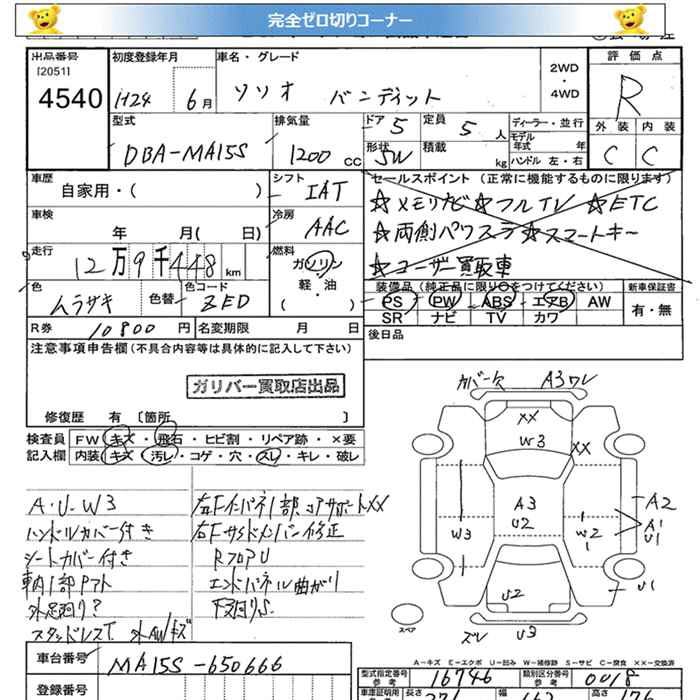 完全ゼロ切りコーナー
出品番号 初度登録年月 車名・グレード 2WD・4WD 評価点
[2051]
4540 H24 6月 ソリオ バンディット R
型式 排気量 ドア 5 定員 5人 ディーラー・並行 外装 内装
モデル年式 年
DBA-MA15S 1200cc 形状 5W 積載 kg ハンドル 左・右 C C
車歴 シフト セールスポイント (正常に機能するものに限ります)
自家用・( ) IAT ☆メモリナビ☆フルTV ☆ETC
車検 冷房 ☆両側パワスラ☆スマートキー
年 月( 日) AAC ☆ユーザー買取車
走行 燃料
12万9千448km ガソリン
軽・油
( )
色 色替 色コード 装備品 (純正品に限り○をつけてください) 新車保証書
ムラサキ ZED PS PW ABS エアB AW 有・無
SR ナビ TV カワ
R券 10800円 名変期限 月 日 後日品
注意事項申告欄(不具合内容等は具体的に記入して下さい)
ガリバー買取店出品
修復歴 有 〔箇所 〕
検査員 FW キズ・飛石・ヒビ割・リペア跡・×要
記入欄 内装 キズ・汚レ・コゲ・穴・スレ・キレ・破レ
A・U-W3 右Fインパネ1部、コアサポートXX
ハンドルカバー付き 右Fサイドメンバー修正
シートカバー付き RフロアU
車内1部ヤケト エンドパネル曲がり
外足廻り? 下廻りS.
スタッドレスT 外AW/キズ
カバー欠 A3ワレ
XX
W3
XX
A3
U2
W3
W2
A2
A1
U1
U2
U1
スペア
ズレ U3
A-キズ E-エクボ U-凹み W-補修跡 S-サビ C-腐食 ××-交換済
車台番号 MA15S-650666
型式指定番号 参考 16746 類別区分番号 参考 0018
登録番号
長さ 幅 高さ